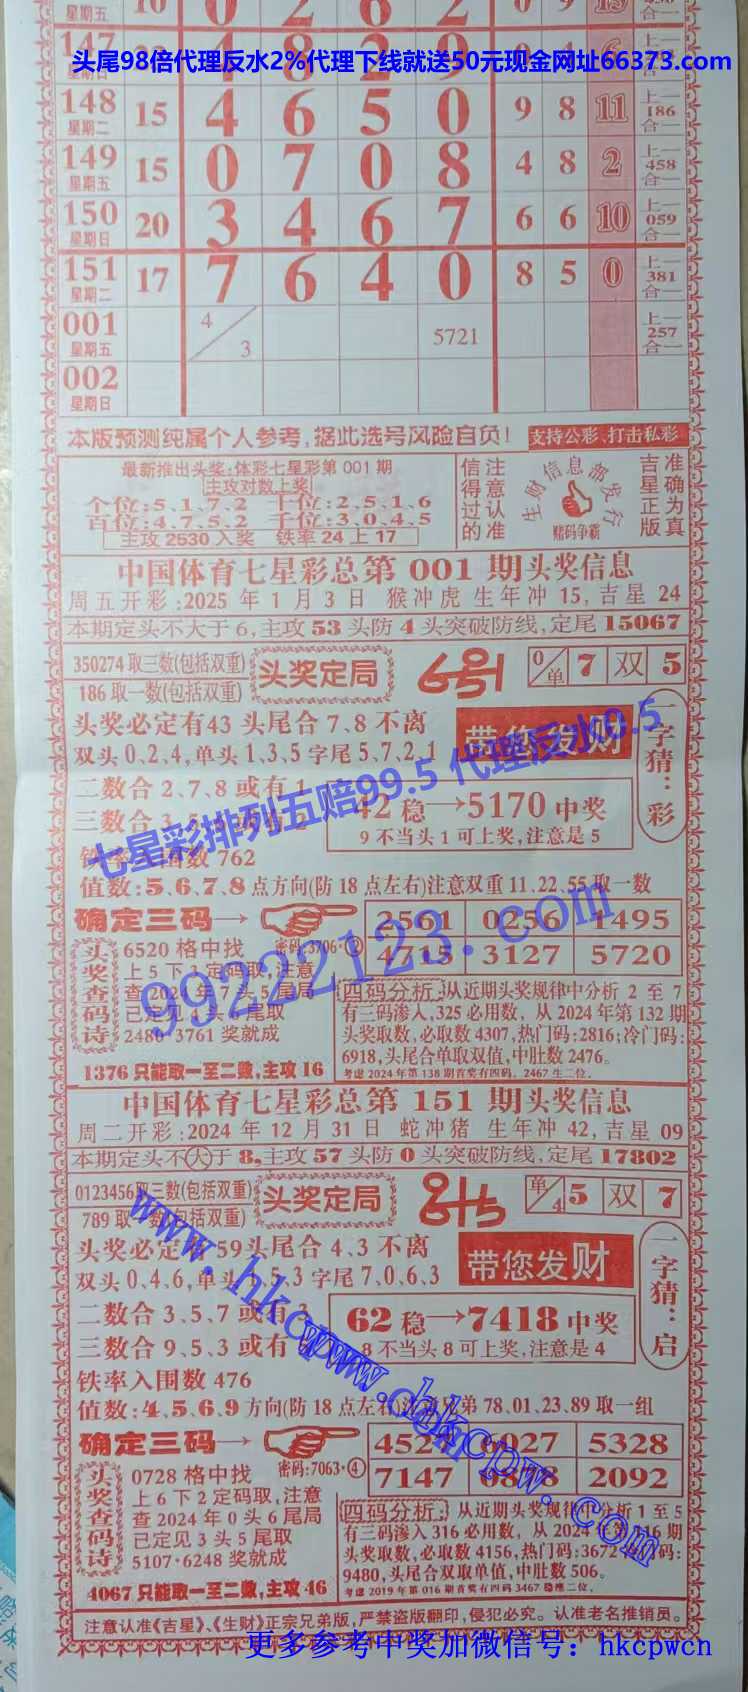 星期五 10 0 2 6 2 0 9 15
头尾98倍代理反水2%代理下线就送50元现金网址66373.com
147
148 星期二 15 4 6 5 0 9 8 11 上一186合一
149 星期五 15 0 7 0 8 4 8 2 上一458合一
150 星期日 20 3 4 6 7 6 6 10 上一059合一
151 星期二 17 7 6 4 0 8 5 0 上一381合一
001 星期五 4/3 5721 上一257合一
002 星期日
本版预测纯属个人参考,据此选号风险自负! 支持公彩、打击私彩
最新推出头奖:体彩七星彩第001期
主攻对数上奖
个位:5、1、7、2 十位:2、5、1、6
百位:4、7、5、2 千位:3、0、4、5
主攻2530入奖 铁率24上17
信得过的
注意认准
生财信息部发行
赌码争霸
吉星正版
准确为真
中国体育七星彩总第 001 期头奖信息
周五开彩:2025 年 1 月 3 日 猴冲虎 生年冲 15,吉星 24
本期定头不大于6,主攻53头防4头突破防线,定尾15067
350274取三数(包括双重)
186取一数(包括双重)
头奖定局
6号1
0/单 7 双 5
头奖必定有43 头尾合 7、8 不离
双头0、2、4,单头1、3、5字尾5、7、2、1
带您发财
一字猜:彩
二数合 2、7、8 或有 1
三数合 3、5、
42稳→5170中奖
9不当头1可上奖,注意是5
七星彩排列五赔99.5 代理反水0.5
铁率入围数 762
值数:5、6、7、8点方向(防18点左右)注意双重11、22、55取一数
确定三码→
2561 0256 1495
4715 3127 5720
99222123.com
头奖查码诗
6520 格中找 密码:3706·②
上5下1定码取,注意
查2024年7头5尾局
已定见4头0尾取
2480·3761 奖就成
1376只能取一至二数,主攻16
四码分析:从近期头奖规律中分析 2 至 7
有三码渗入,325必用数, 从2024年第132期
头奖取数,必取数4307,热门码:2816;冷门码:
6918,头尾合单取双值,中肚数2476。
考虑2024年第138期首奖有四码、2467生二位。
中国体育七星彩总第 151 期头奖信息
周二开彩:2024 年 12 月 31 日 蛇冲猪 生年冲 42,吉星 09
本期定头不大于8,主攻57头防0头突破防线,定尾17802
0123456取三数(包括双重)
789取一数(包括双重)
头奖定局
8尾5
单/4 5 双 7
www.hkcpw.com
头奖必定有59头尾合 4、3 不离
双头0、4、6,单头1、5、3字尾7、0、6、3
带您发财
一字猜:启
二数合 3、5、7 或有
三数合 9、5、3 或有
62稳→7418中奖
8不当头8可上奖,注意是4
铁率入围数 476
值数:4、5、6、9方向(防18点左右)注意兄弟78、01、23、89取一组
确定三码→
6027 5328
7147 2092
www.hkcpw.com
头奖查码诗
0728 格中找 密码:7063·④
上6下2定码取,注意
查2024年0头6尾局
已定见3头5尾取
5107·6248 奖就成
4067只能取一至二数,主攻46
四码分析:从近期头奖规律中分析 1 至 5
有三码渗入316必用数, 从2024年第116期
头奖取数,必取数4156,热门码:3672
9480,头尾合双取单值,中肚数506。
考虑2019年第016期首奖有四码3467稳推二位。
注意认准《吉星》、《生财》正宗兄弟版,严禁盗版翻印,侵犯必究。认准老名推销员。
更多参考中奖加微信号：hkcpwcn